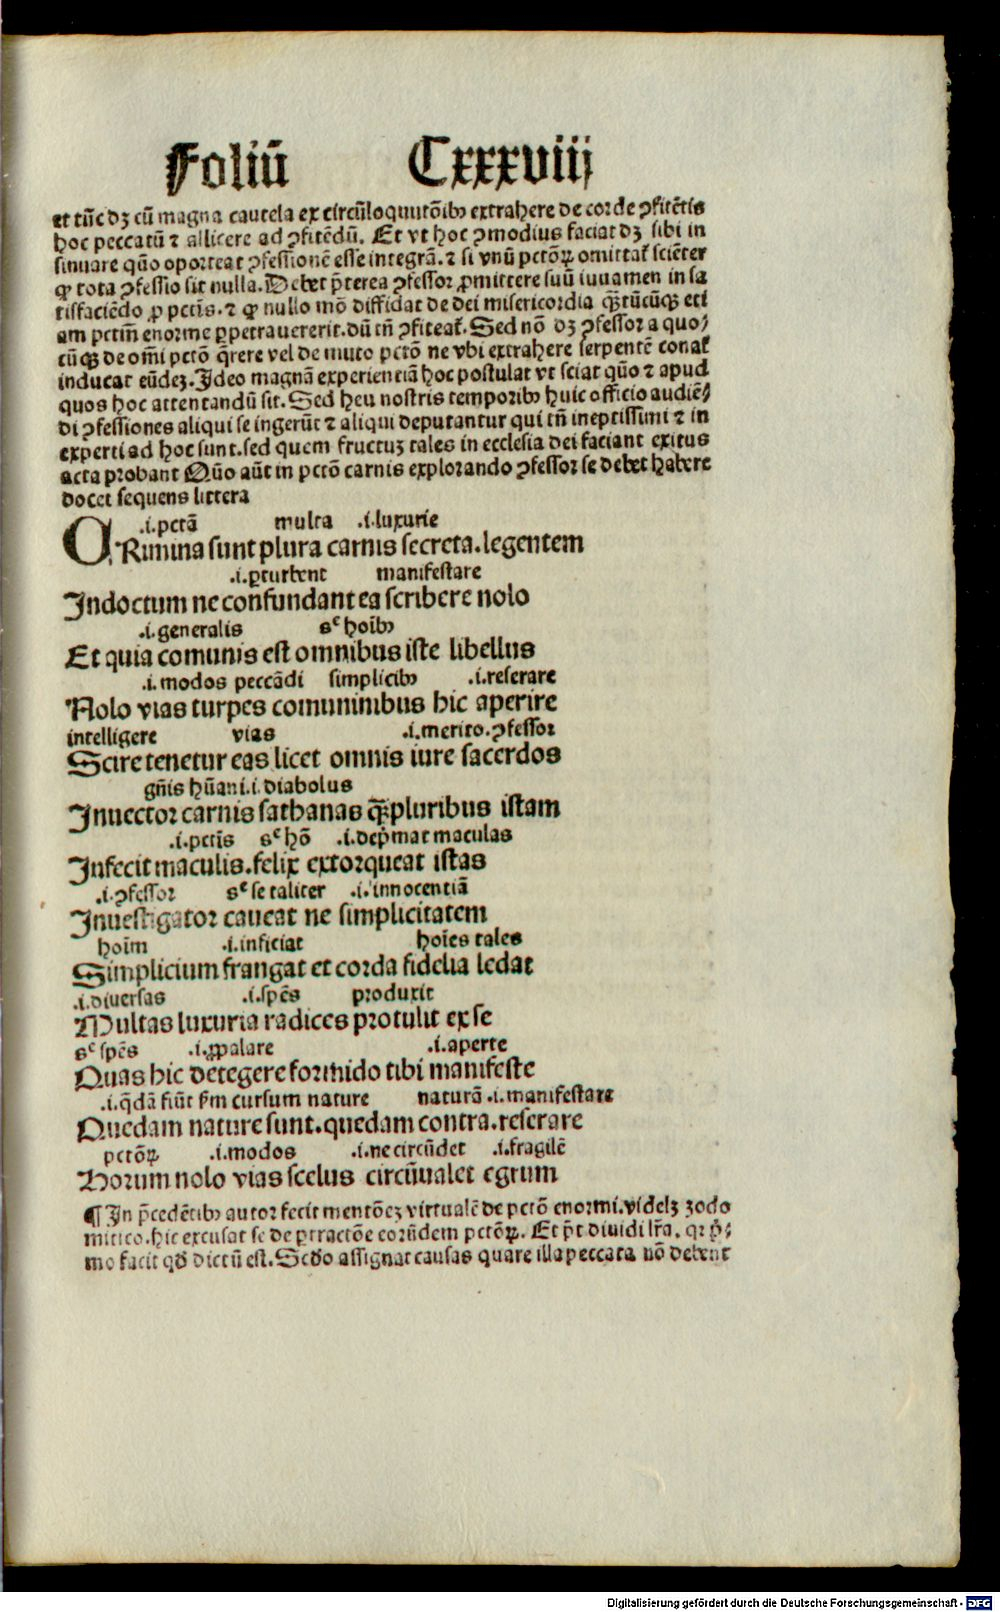 Foliū Cxxxviij
et tūc dꝫ cū magna cautela ex circūloquutōibꝰ extrahere de corde ꝯfitētis
hoc peccatū ⁊ allicere ad ꝯfitēdū. Et vt hoc ꝯmodius faciat dꝫ sibi in
sinuare quō oporteat ꝯfessionē esse integrā. ⁊ si vnū pctōꝝ omittat̄ sciēter
ꝙ tota ꝯfessio sit nulla. Debet p̄terea ꝯfessor ꝓmittere suū iuuamen in sa
tisfaciēdo ꝓ pctīs. ⁊ ꝙ nullo mō diffidat de dei misericordia qꝫtūcūqꝫ eti
am pctm̄ enorme ꝑpetrauererit. dū tn̄ ꝯfiteat̄. Sed nō dꝫ ꝯfessor a quo⸗
cūqꝫ de om̄i pctō q̄rere vel de muto pctō ne vbi extrahere serpentē conat̄
inducat eūdeꝫ. Ideo magnā experientiā hoc postulat vt sciat quō ⁊ apud
quos hoc attentandū sit. Sed heu nostris temporibꝰ huic officio audiē⸗
di ꝯfessiones aliqui se ingerūt ⁊ aliqui deputantur qui tn̄ ineptissimi ⁊ in
experti ad hoc sunt. sed quem fructuꝫ tales in ecclesia dei faciant exitus
acta probant Quō aūt in pctō carnis explorando ꝯfessor se debet habere
docet sequens littera
.i. pctā multa .i. luxurie
CRimina sunt plura carnis secreta. legentem
.i. ꝑturbent manifestare
Indoctum ne confundant ea scribere nolo
.i. generalis sᶜ hoībꝰ
Et quia comunis est omnibus iste libellus
.i. modos peccādi simplicibꝰ .i. reserare
Nolo vias turpes comuninibus hic aperire
intelligere vias .i. merito. ꝯfessor
Scire tenetur eas licet omnis iure sacerdos
gn̄is hūani .i. diabolus
Inuector carnis sathanas qꝫpluribus istam
.i. pctīs sᶜ hō .i. dep̄mat maculas
Infecit maculis. felix extorqueat istas
.i. ꝯfessor sᶜ se taliter .i. innocentiā
Inuestigator caueat ne simplicitatem
hoīm .i. inficiat hoīes tales
Simplicium frangat et corda fidelia ledat
.i. diuersas .i. spēs produxit
Multas luxuria radices protulit ex se
sᶜ spēs .i. ꝓpalare .i. aperte
Quas hic detegere formido tibi manifeste
.i. q̄dā fiūt ẜm cursum nature naturā .i. manifestare
Quedam nature sunt. quedam contra. reserare
pctōꝝ .i. modos .i. ne circūdet .i. fragilē
Horum nolo vias scelus circūualet egrum
¶ In p̄cedētibꝰ autor fecit mentōeꝫ virtualē de pctō enormi. videlꝫ zodo
mitico. hic excusat se de ꝑtractōe eorūdem pctōꝝ. Et p̄t diuidi lr̄a. qꝛ p̄⸗
mo facit qđ dictū est. Scđo assignat causas quare illa peccata nō debent
Digitalisierung gefördert durch die Deutsche Forschungsgemeinschaft - DFG